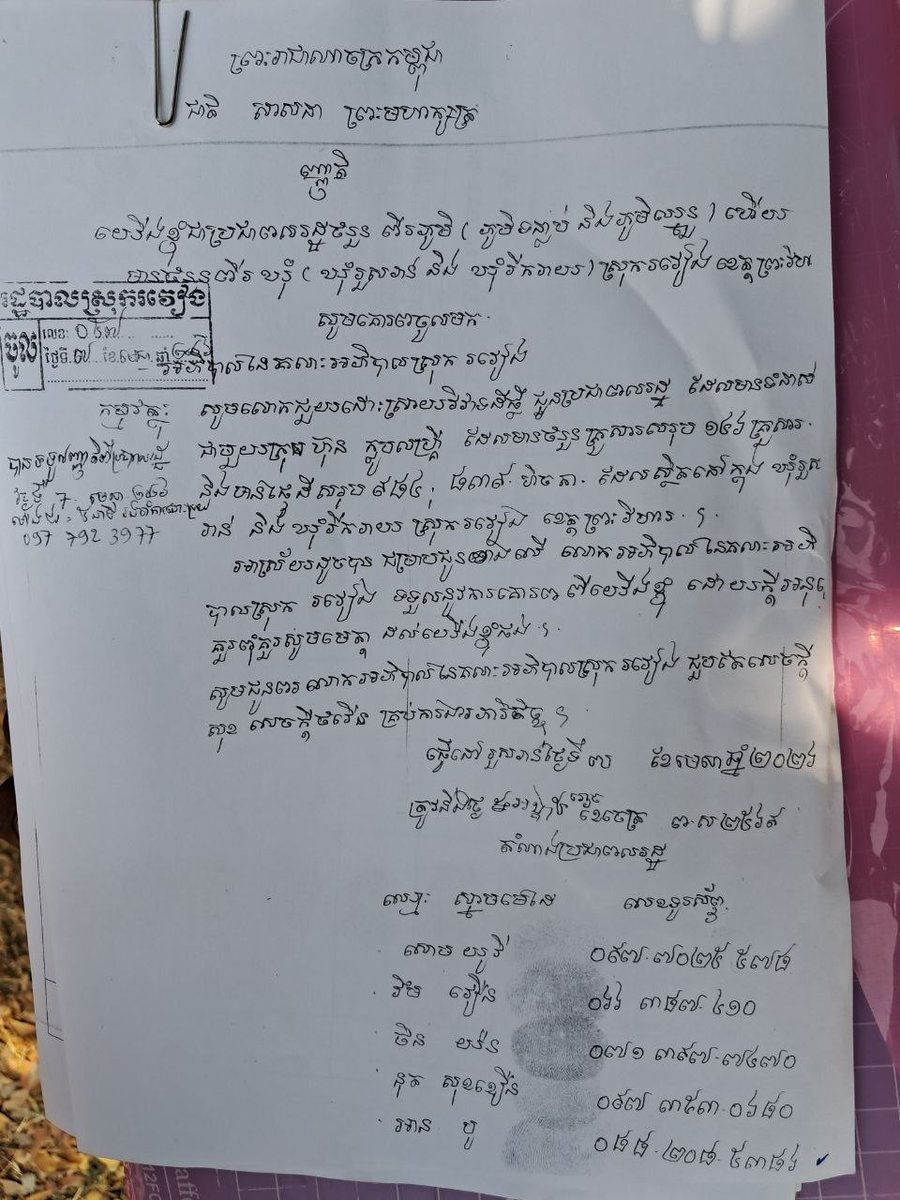 ព្រះរាជាណាចក្រកម្ពុជា
ជាតិ សាសនា ព្រះមហាក្សត្រ
ញ្ញត្តិ
យើងខ្ញុំជាប្រជាពលរដ្ឋចំនួន ពីរភូមិ ( ភូមិ និងភូមិឈ្នួន ) ហើយ
មានចំនួនពីរ ឃុំ ( ឃុំរួសរាន់ និង ឃុំរីករាយ ) ស្រុករវៀង ខេត្តព្រះវិហារ
សូមគោរពចូលមក
រដ្ឋបាលស្រុករវៀង
ចូល
លេខ: ០៦៣
ថ្ងៃទី ៧ ខែ មេសា ឆ្នាំ ២០២៦
អភិបាលនៃគណៈអភិបាលស្រុក រវៀង
កម្មវត្ថុ: សូមលោកជួយដោះស្រាយវិវាទដីធ្លី ជូនប្រជាពលរដ្ឋ ដែលមានទំនាស់
ជាមួយក្រុមហ៊ុន ដែលមានចំនួនគ្រួសារសរុប ១៤៦ គ្រួសារ
និងមានផ្ទៃដីសរុប ៩៨៤, ៨៣៩ ហិចតា ដែលស្ថិតនៅក្នុង ឃុំរួស
រាន់ និងឃុំរីករាយ ស្រុករវៀង ខេត្តព្រះវិហារ ។
អាស្រ័យដូចបាន ជម្រាបជូនខាងលើ លោកអភិបាលនៃគណៈអភិ
បាលស្រុក រវៀង ទទួលនូវការគោរព ពីយើងខ្ញុំ ដោយក្តីអនុគ្រោះ
គួរពុំគួរសូមមេត្តា ដល់យើងខ្ញុំផង ។
សូមជូនពរ លោកអភិបាលនៃគណៈអភិបាលស្រុករវៀង ជួបតែសេចក្តី
សុខ សេចក្តីចំរើន គ្រប់ការងារ ។
៧ មេសា ២០២៦
097 792 3977
ធ្វើនៅ រួសរាន់ថ្ងៃទី ៧ ខែមេសាឆ្នាំ២០២៦
ត្រូវនឹងថ្ងៃ ខែចេត្រ ព.ស ២៥៦៩
តំណាងប្រជាពលរដ្ឋ
ឈ្មោះ ស្នាមមេដៃ លេខទូរស័ព្ទ
សោម យូវី ០៩៧.៧០២៥ ៥៧៨
រឹម វឿន ០៦៦ ៣៨៧.៤១០
ចិន យ៉ន ០៧១ ៣៩៧.៧៤៧០
នុត សុខខឿន ០៩៧ ៣៥៣.០៦៨០
អាន បូ ០៨៨.២០៨.៥៣៨៦